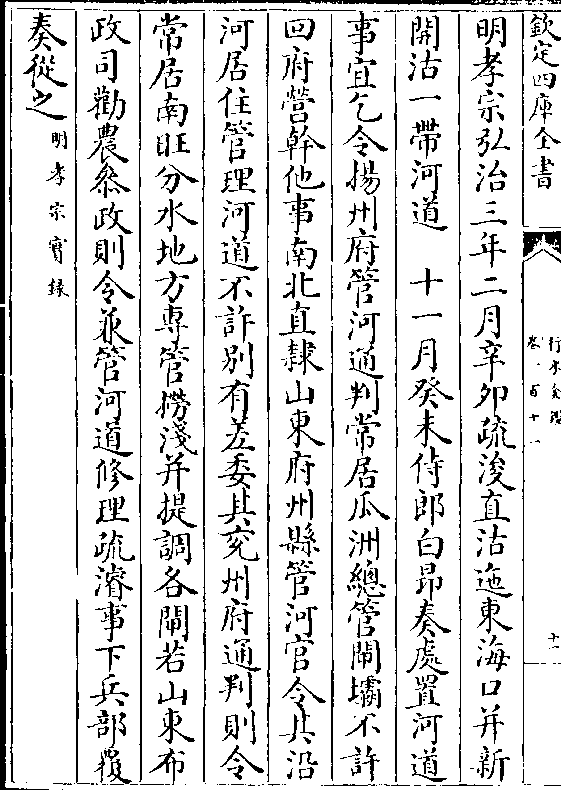 欽定四庫全書
行水金鑑
卷一百十一
十一
明孝宗弘治三年二月辛卯疏浚直沽迤東海口并新
開沽一帶河道　十一月癸未侍郎白昂奏處置河道
事宜乞令揚州府管河通判常居瓜洲總管閘壩不許
回府營幹他事南北直隸山東府州縣管河官令其沿
河居住管理河道不許別有差委其兗州府通判則令
常居南旺分水地方專管撈淺并提調各閘若山東布
政司勸農叅政則令兼管河道修理疏濬事下兵部覆
奏從之明孝宗實錄